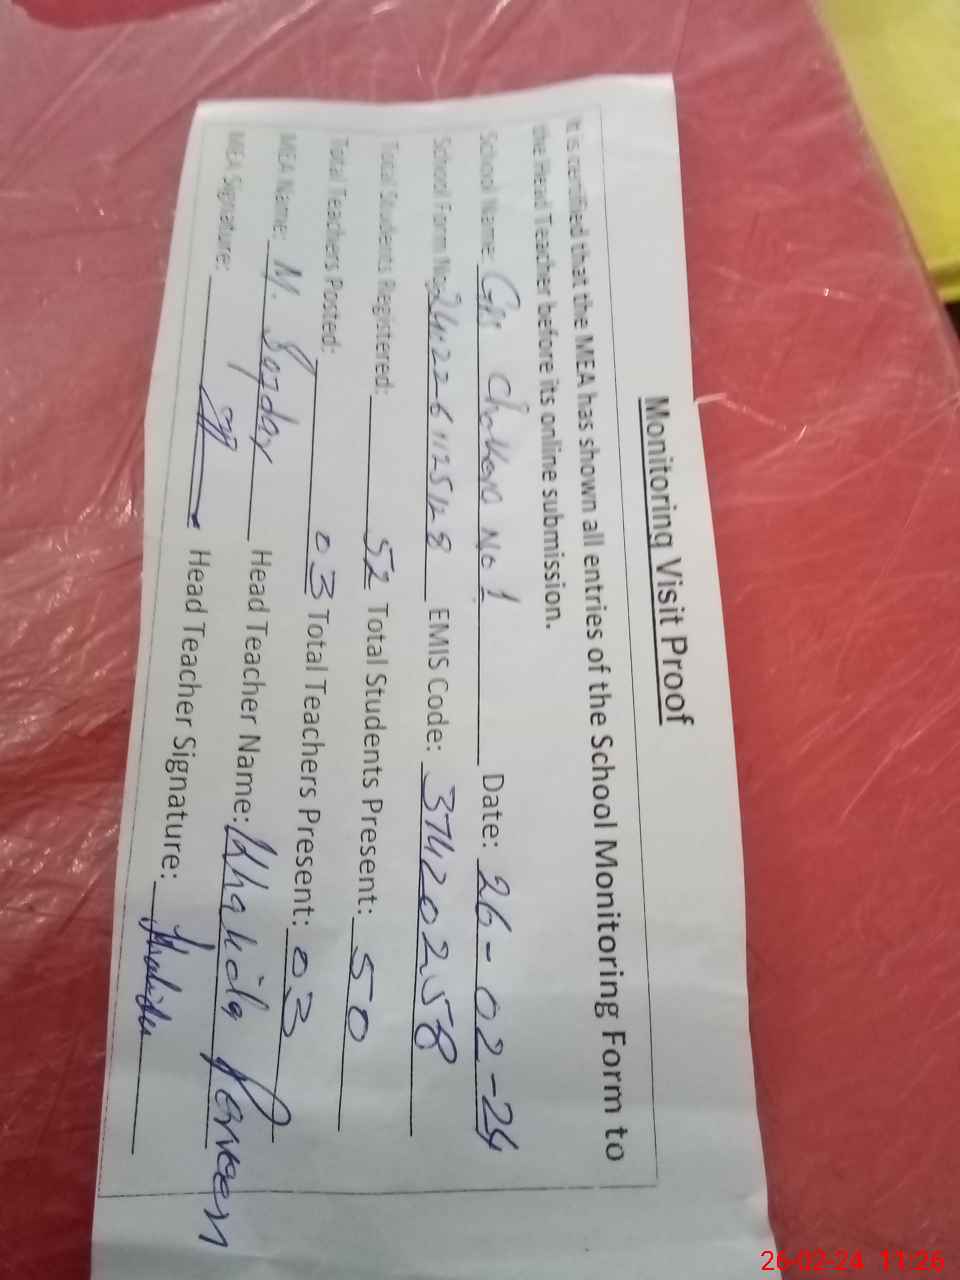 Monitoring Visit Proof
It is certified that the MEA has shown all entries of the School Monitoring Form to
the Head Teacher before its online submission.
School Name: No 1 Date: 26-02-24
School Form No: EMIS Code: 37420258
Total Students Registered: 52 Total Students Present: 50
Total Teachers Posted: 03 Total Teachers Present: 03
MEA Name: M. Head Teacher Name: Khalida Perveen
MEA Signature: Head Teacher Signature: Khalida
26-02-24 11:26